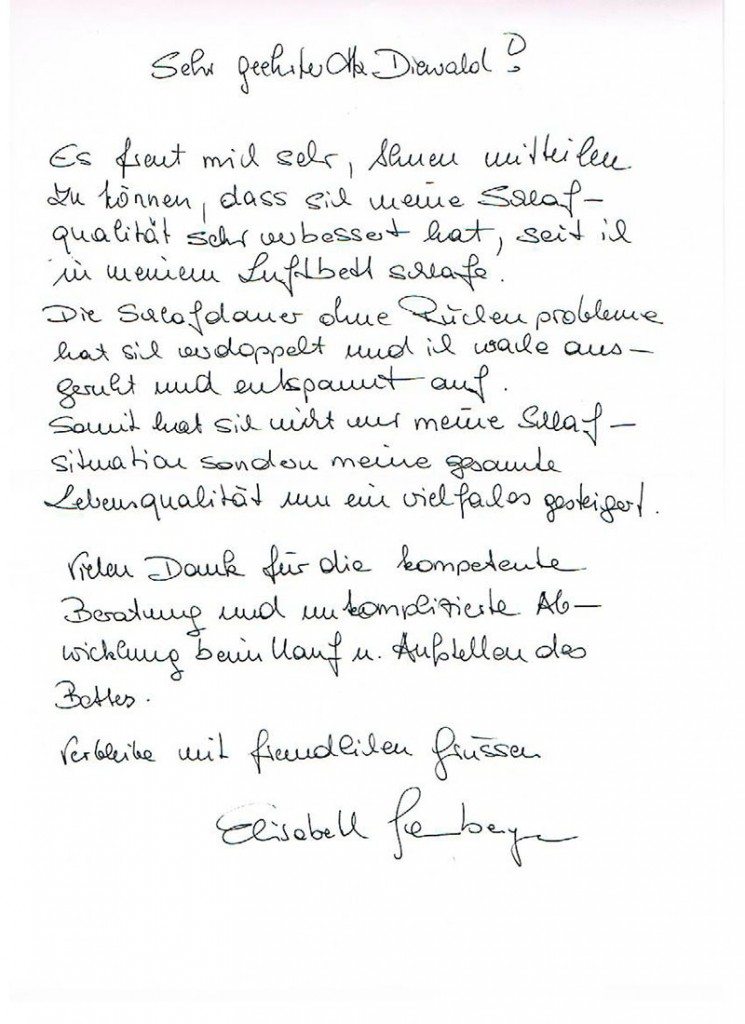 Sehr geehrter Otto Diewald!
Es freut mich sehr, Ihnen mitteilen
zu können, dass sich meine Schlaf-
qualität sehr verbessert hat, seit ich
in meinem Luftbett schlafe.
Die Schlafdauer ohne Rückenprobleme
hat sich verdoppelt und ich wache aus-
geruht und entspannt auf.
Somit hat sich nicht nur meine Schlaf-
situation sondern meine gesamte
Lebensqualität um ein vielfaches gesteigert.
Vielen Dank für die kompetente
Beratung und unkomplizierte Ab-
wicklung beim Kauf u. Aufstellen des
Bettes.
Verbleibe mit freundlichen Grüssen
Elisabeth